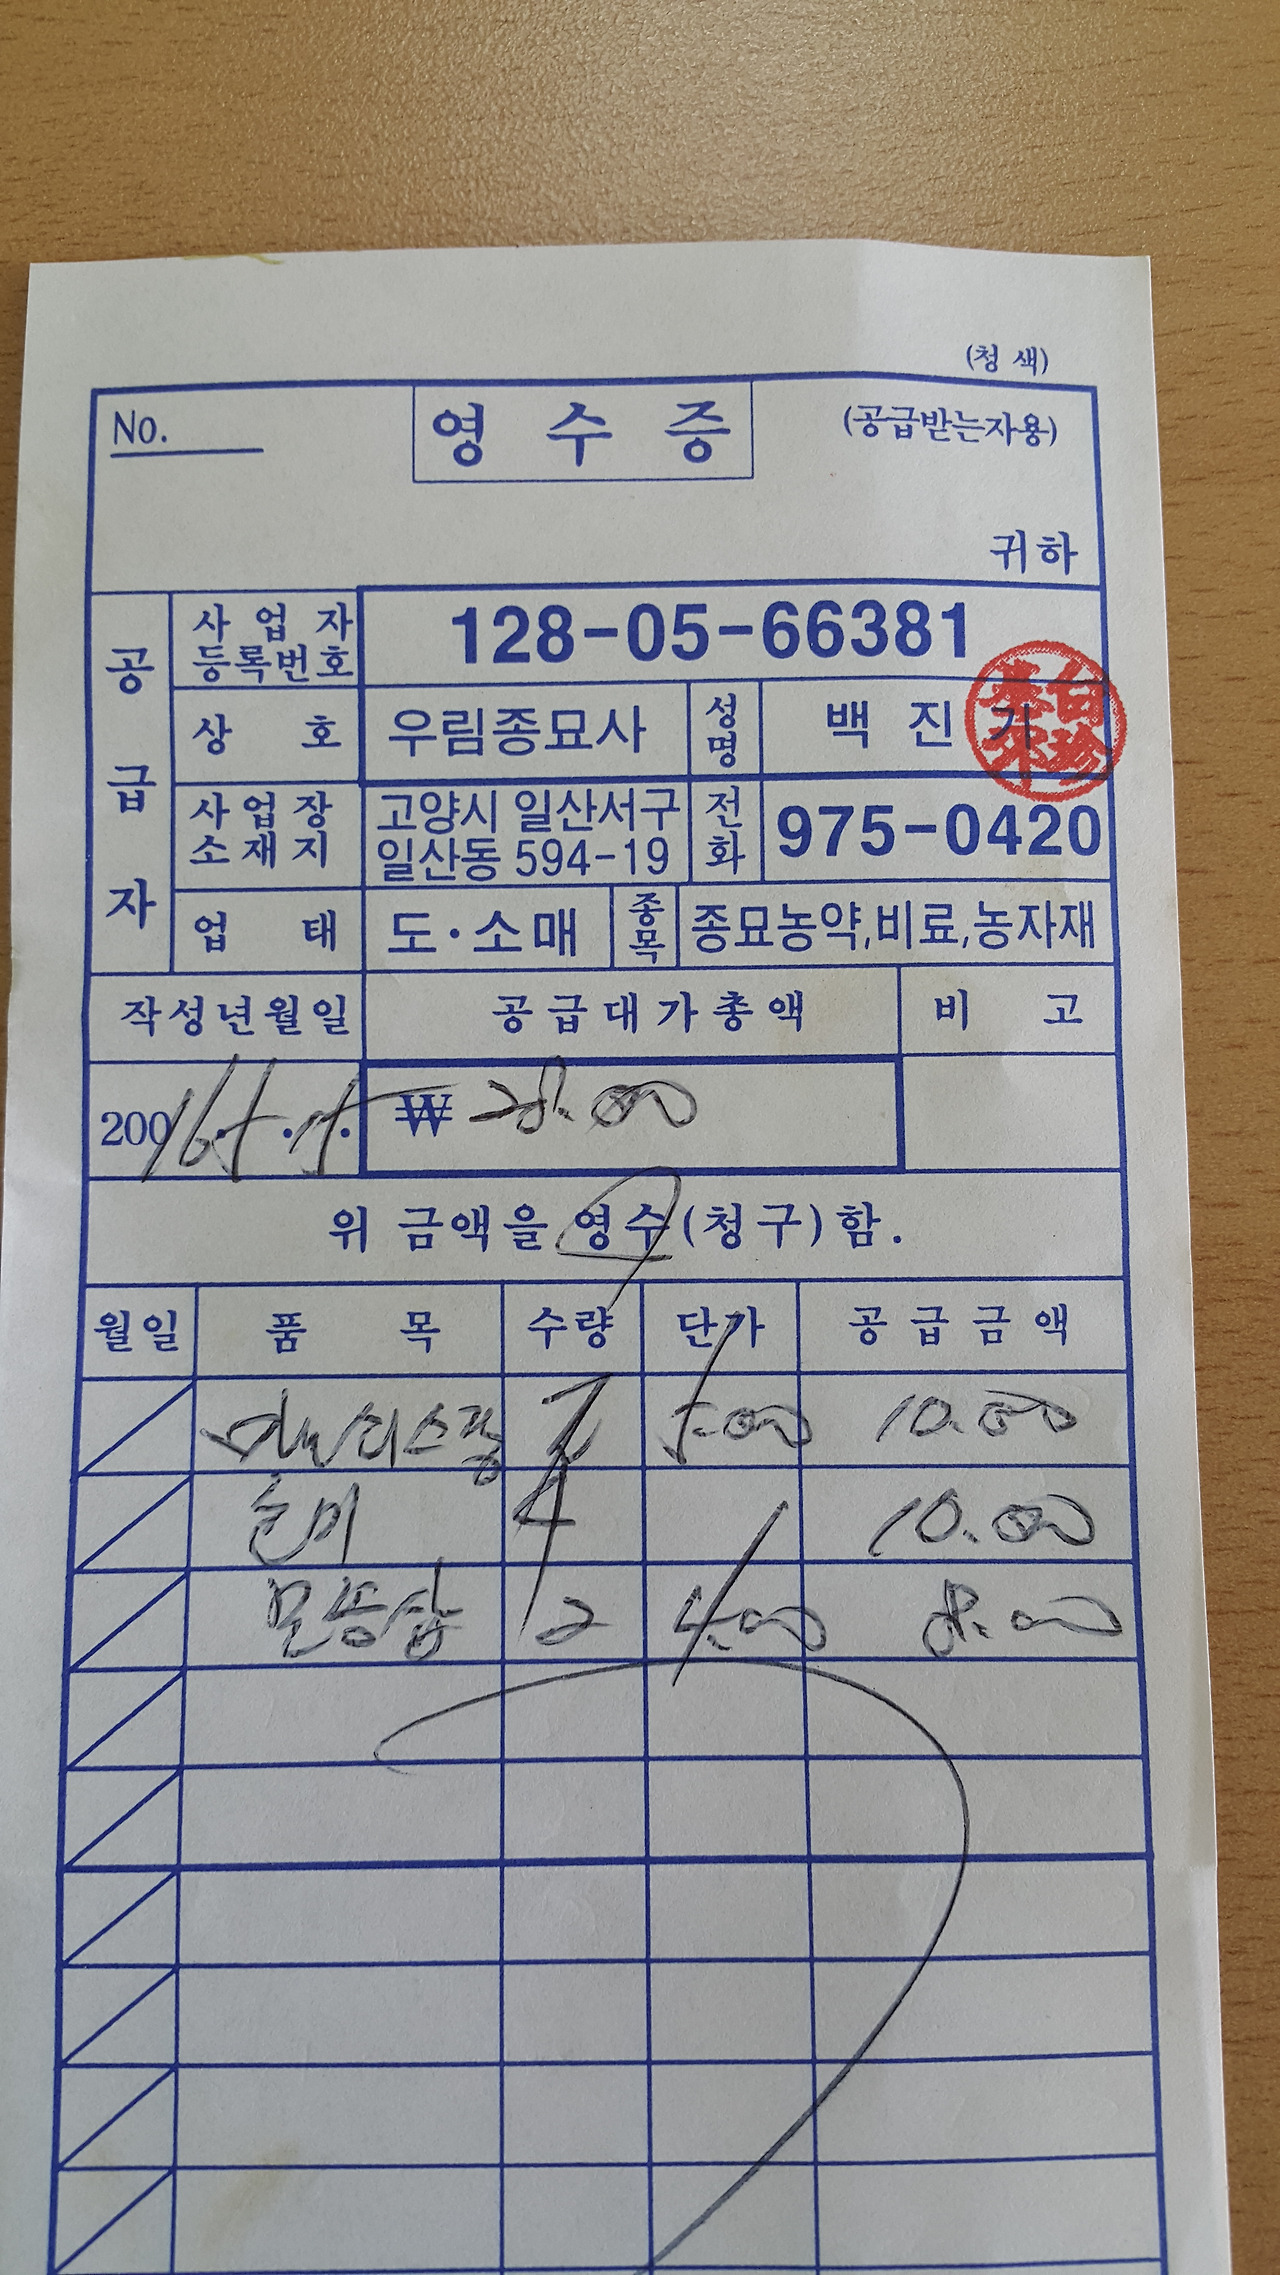 (청 색)
No. 영 수 증 (공급받는자용)
귀하
공급자
사업자등록번호 128-05-66381
상 호 우림종묘사 성명 백 진 기
사업장소재지 고양시 일산서구 일산동 594-19 전화 975-0420
업 태 도·소매 종목 종묘농약,비료,농자재
작성년월일 공급대가총액 비 고
200 16. 5. ₩ 28.000
위 금액을 영수(청구)함.
월일 품 목 수량 단가 공급금액
2 5.000 10.000
4 10.000
2 4.000 8.000